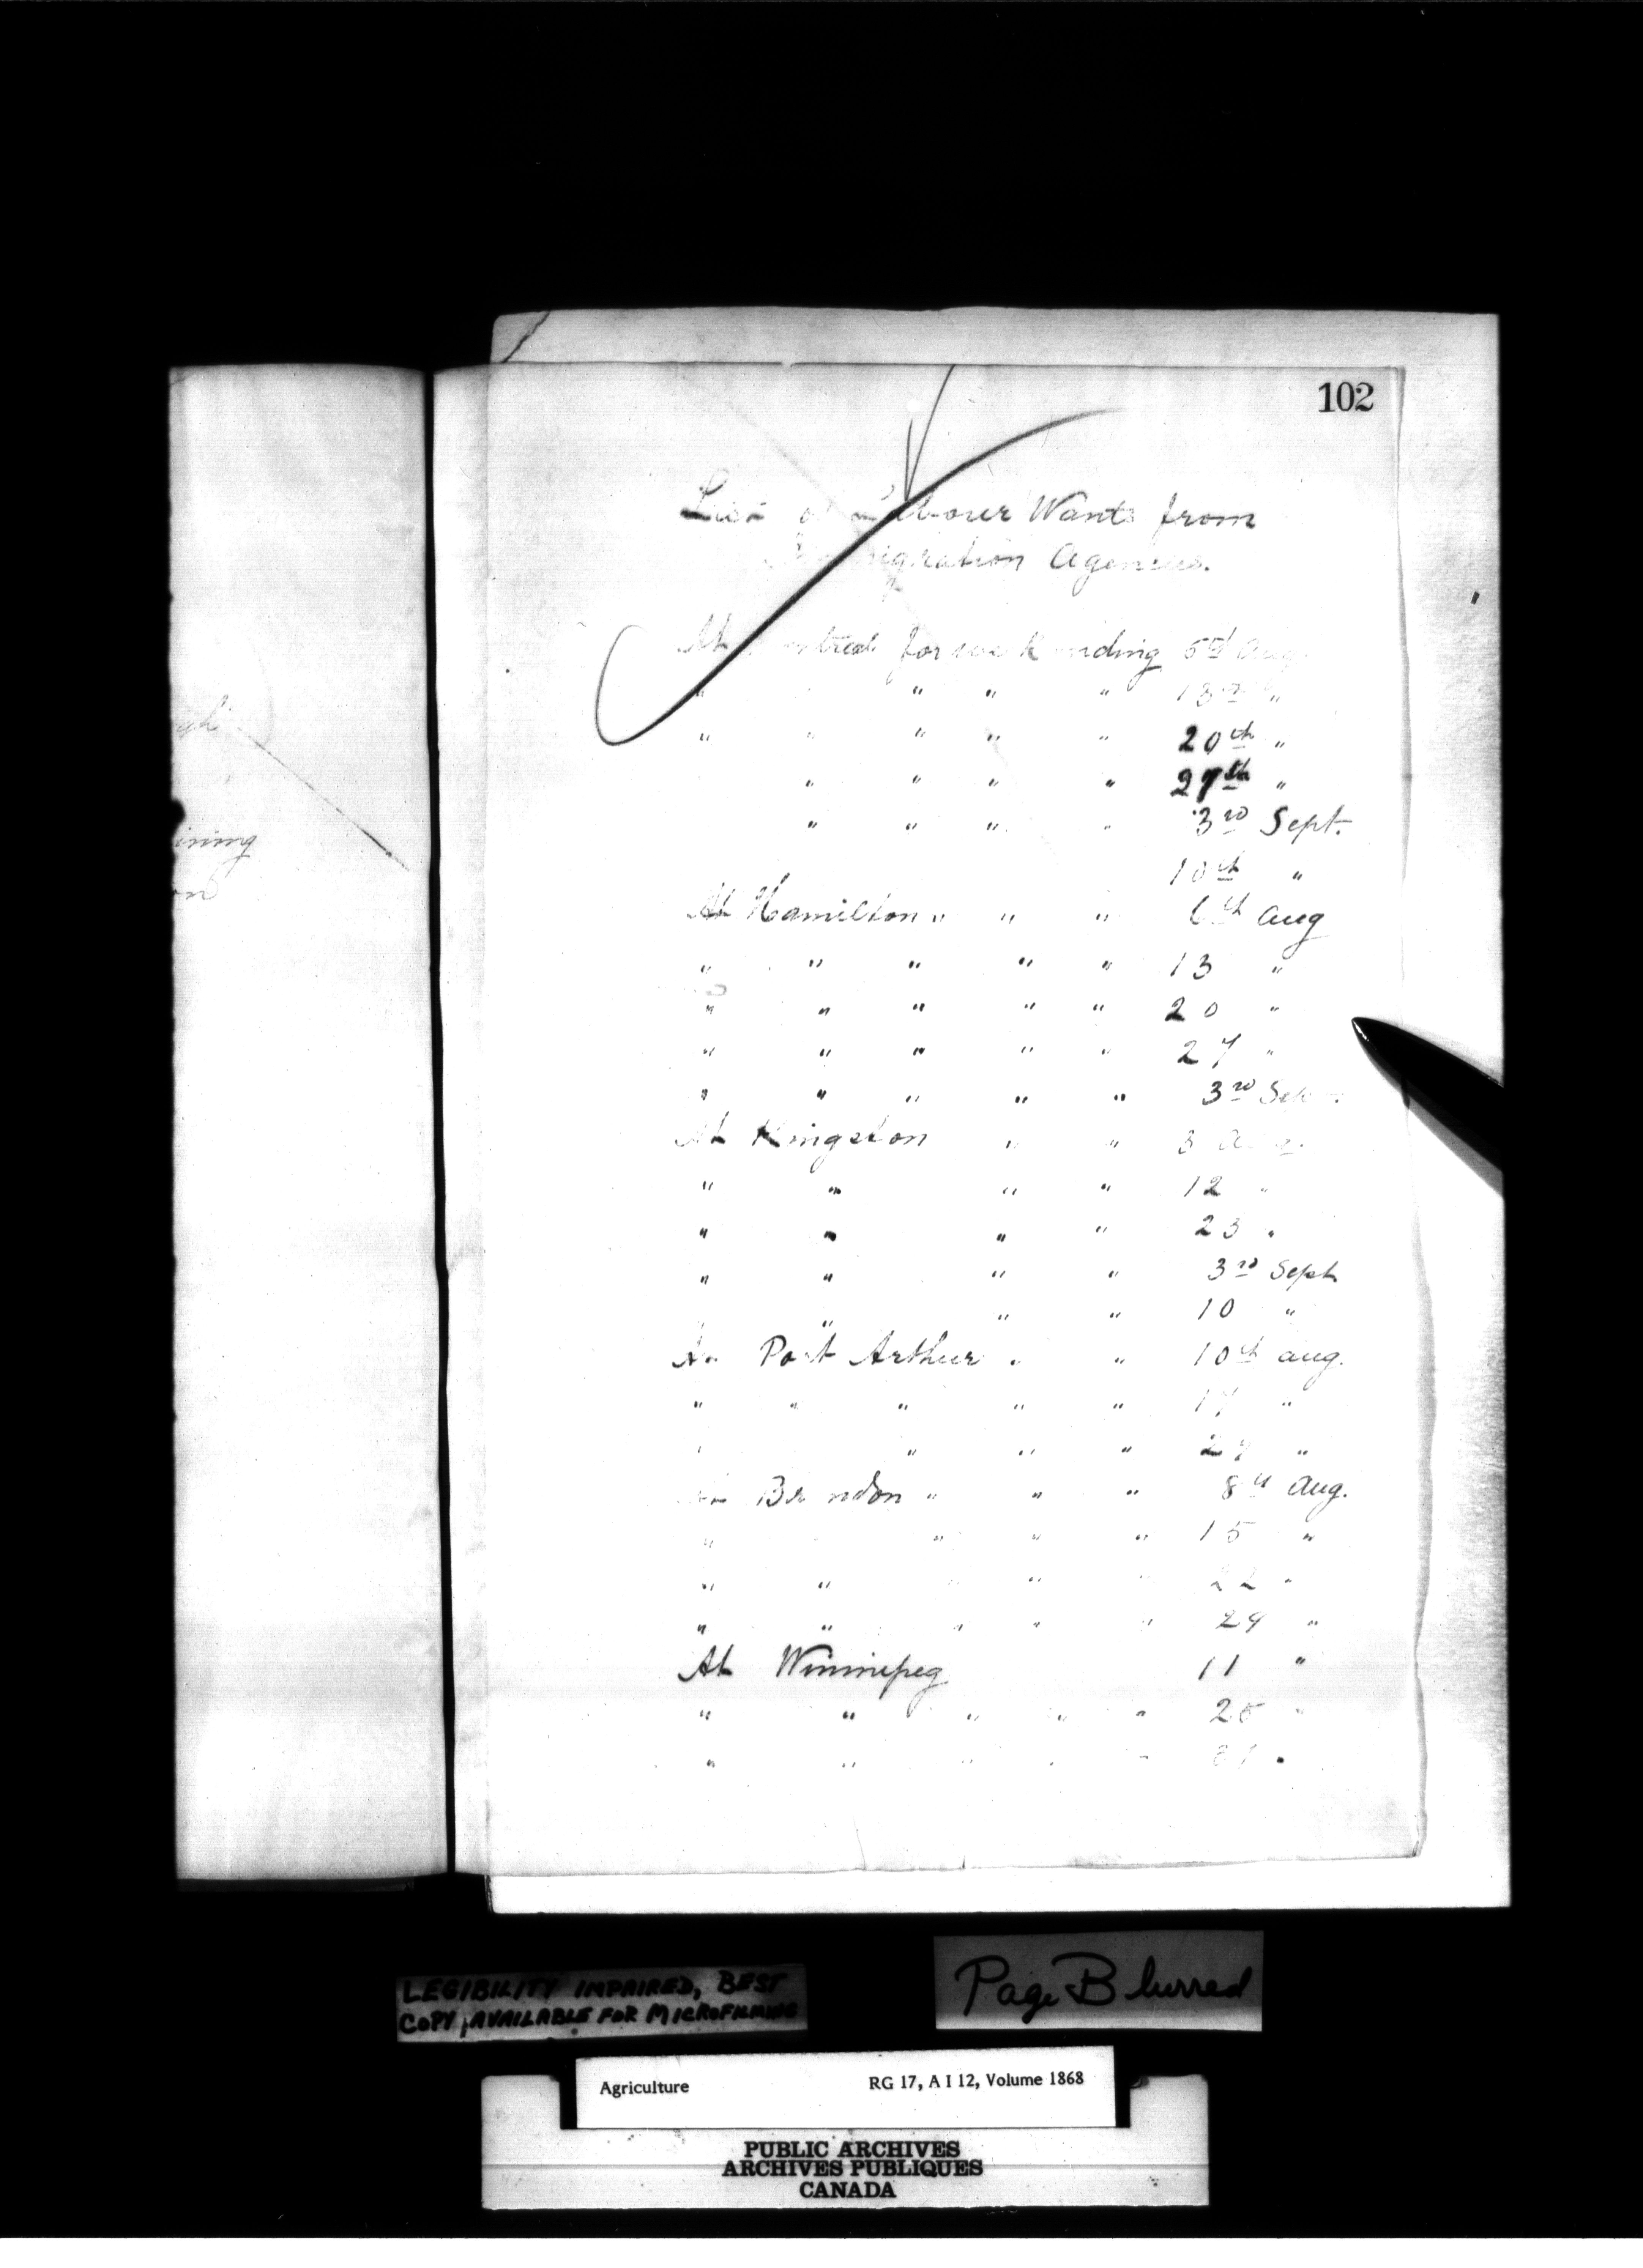 102
List of Labour Wants from
Immigration Agencies.
At Montreal for week ending 5th Aug.
" " " " 13th "
" " " " " 20th "
" " " " 27th "
" " " " 3rd Sept.
10th "
At Hamilton " " " 6th Aug
" " " " " 13 "
" " " " " 20 "
" " " " " 27 "
" " " " " 3rd Sept
At Kingston " " 3 Aug.
" " " " 12 "
" " " " 23 "
" " " " 3rd Sept
" " " " 10 "
At Port Arthur " " 10th Aug.
" " " " " 17 "
" " " " "
At Brandon " " " 8th Aug.
" " " " 15 "
" " " " " 22 "
" " " " " 29 "
At Winnipeg 11 "
" " " " " 25 "
" " " " " 31 "
gh
ining
LEGIBILITY IMPAIRED, BEST
COPY AVAILABLE FOR MICROFILMING
Page Blurred
Agriculture RG 17, A I 12, Volume 1868
PUBLIC ARCHIVES
ARCHIVES PUBLIQUES
CANADA